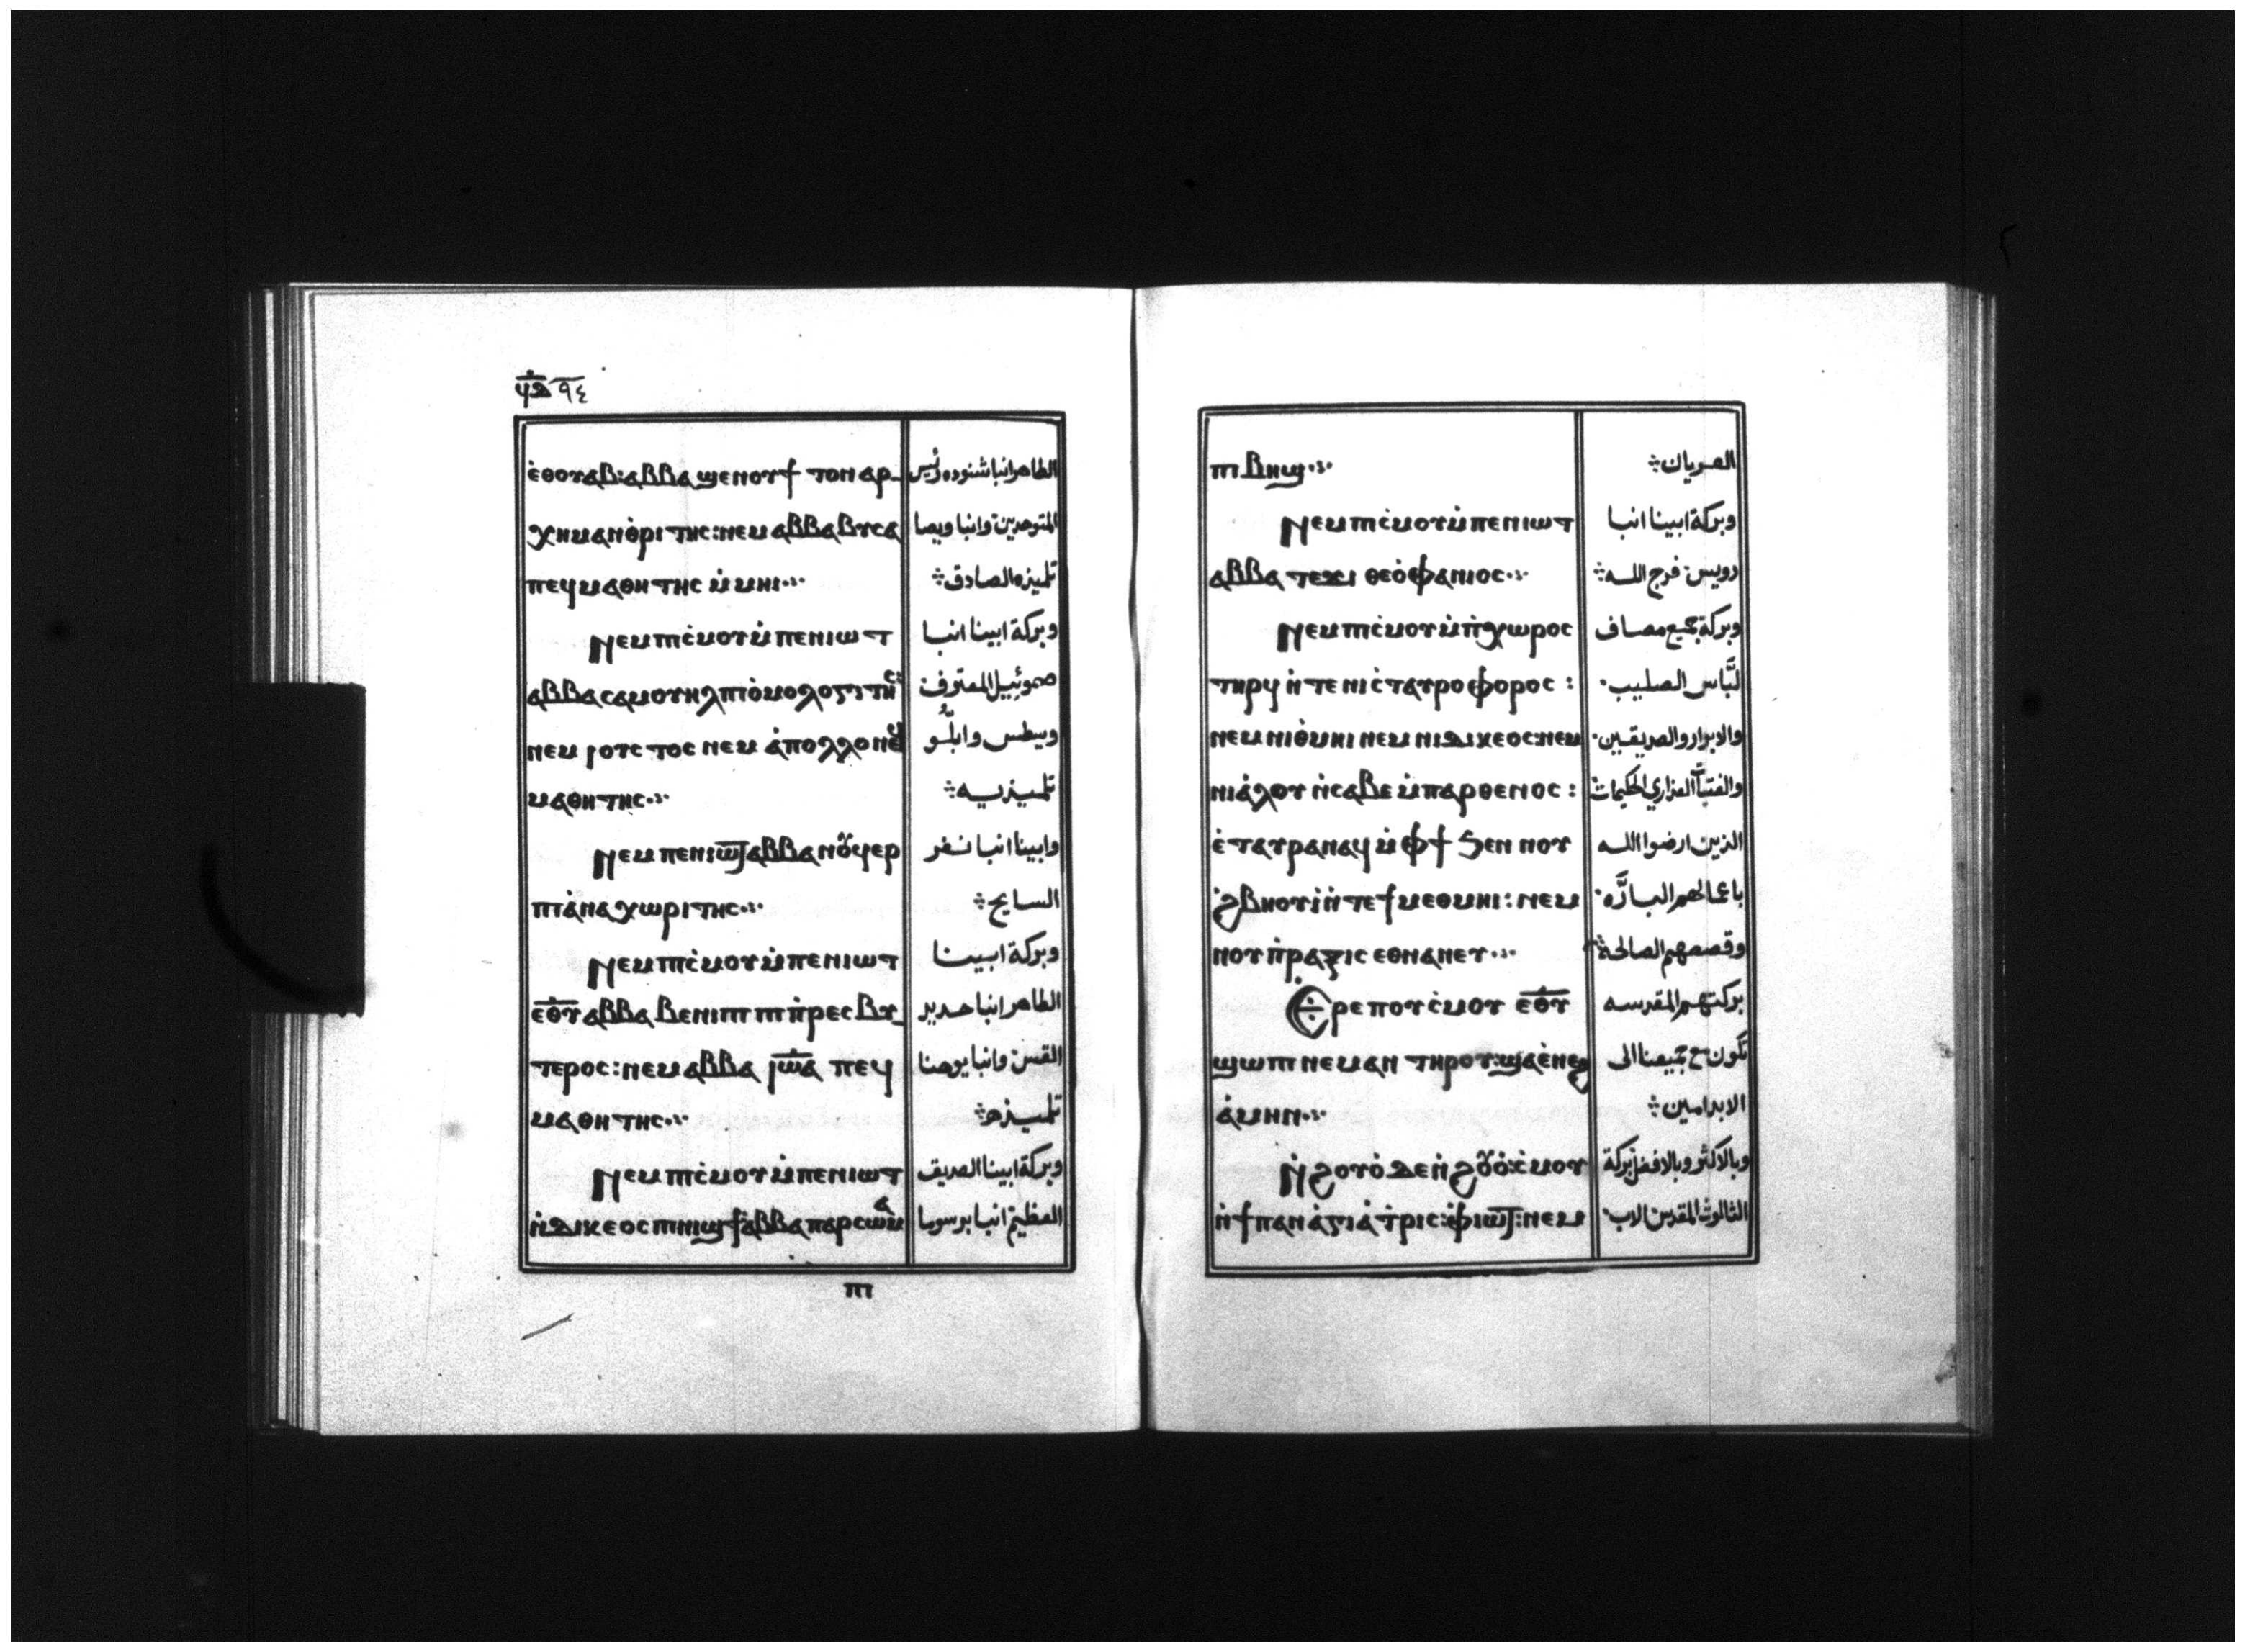 ϥⲇ ٩٤
ⲉ̀ⲑⲟⲩⲁⲃ: ⲁⲃⲃⲁ ϣⲉⲛⲟⲩϯ ⲧⲟⲛ ⲁⲣ- الطاهر انبا شنوده رئيس
ⲭⲏⲙⲁⲛⲑ̀ⲣⲓⲧⲏⲥ: ⲛⲉⲙ ⲁⲃⲃⲁ ⲃⲩⲥⲁ المتوحدين وانبا ويصا
ⲡⲉϥⲙⲁⲑⲏⲧⲏⲥ ⲙ̀ⲙⲏⲓ تلميذه الصادق
ⲛⲉⲙ ⲡⲓⲥ̀ⲙⲟⲩ ⲙ̀ⲡⲉⲛⲓⲱⲧ وبركة ابينا انبا
ⲁⲃⲃⲁ ⲥⲁⲙⲟⲩⲏⲗ ⲡⲓⲟ̀ⲙⲟⲗⲟⲅⲓⲧⲏⲥ: صموئيل المعترف
ⲛⲉⲙ ⲓⲟⲩⲥⲧⲟⲥ ⲛⲉⲙ ⲁ̀ⲡⲟⲗⲗⲟ ⲛⲉϥ وبسطس وابللو
ⲙⲁⲑⲏⲧⲏⲥ تلميذيه
ⲛⲉⲙ ⲡⲉⲛⲓⲱⲧ ⲁⲃⲃⲁ ⲛⲟⲩϥⲉⲣ وابينا انبا نفر
ⲡⲓⲁ̀ⲛⲁⲭⲱⲣⲓⲧⲏⲥ السايح
ⲛⲉⲙ ⲡⲓⲥ̀ⲙⲟⲩ ⲙ̀ⲡⲉⲛⲓⲱⲧ وبركة ابينا
ⲉⲑⲩ ⲁⲃⲃⲁ ⲃⲉⲛⲓⲡⲓ ⲡⲓⲡ̀ⲣⲉⲥⲃⲩ- الطاهر انبا حديد
ⲧⲉⲣⲟⲥ: ⲛⲉⲙ ⲁⲃⲃⲁ ⲓⲱⲁ ⲡⲉϥ القس وانبا يوحنا
ⲙⲁⲑⲏⲧⲏⲥ تلميذه
ⲛⲉⲙ ⲡⲓⲥ̀ⲙⲟⲩ ⲙ̀ⲡⲉⲛⲓⲱⲧ وبركة ابينا الصديق
ⲛ̀ⲇⲓⲕⲉⲟⲥ ⲡⲓⲛⲓϣϯ ⲁⲃⲃⲁ ⲡⲁⲣⲥⲱⲙⲁ العظيم انبا برسوما
ⲡⲓ
ⲡⲓⲃⲏϣ العريان
ⲛⲉⲙ ⲡⲓⲥ̀ⲙⲟⲩ ⲙ̀ⲡⲉⲛⲓⲱⲧ وبركة ابينا انبا
ⲁⲃⲃⲁ ⲧⲉϫⲓ ⲑⲉⲟ̀ⲫⲁⲛⲓⲟⲥ رويس: فرج الله
ⲛⲉⲙ ⲡⲓⲥ̀ⲙⲟⲩ ⲙ̀ⲡ̀ⲭⲱⲣⲟⲥ وبركة جميع مصاف
ⲧⲏⲣϥ ⲛ̀ⲧⲉ ⲛⲓⲥ̀ⲧⲁⲩⲣⲟⲫⲟⲣⲟⲥ: لبَّاس الصليب
ⲛⲉⲙ ⲛⲓⲑ̀ⲙⲏⲓ ⲛⲉⲙ ⲛⲓⲇⲓⲕⲉⲟⲥ: ⲛⲉⲙ والابرار والصديقين
ⲛⲓⲁ̀ⲗⲟⲩ ⲛ̀ⲥⲁⲃⲉ ⲙ̀ⲡⲁⲣⲑⲉⲛⲟⲥ: والفتيات العذاري الحكيمات
ⲉ̀ⲧⲁⲩⲣⲁⲛⲁϥ ⲙ̀ⲫϯ ϧⲉⲛ ⲛⲟⲩ الذين ارضوا الله
ϩ̀ⲃⲏⲟⲩⲓ̀ ⲛ̀ⲧⲉ ϯⲙⲉⲑⲙⲏⲓ: ⲛⲉⲙ باعمالهم البارَّه
ⲛⲟⲩⲡ̀ⲣⲁⲝⲓⲥ ⲉⲑⲛⲁⲛⲉⲩ وقصصهم الصالحة
ⲉ̀ⲣⲉ ⲡⲟⲩⲥ̀ⲙⲟⲩ ⲉⲑⲩ بركتهم المقدسه
ϣⲱⲡⲓ ⲛⲉⲙⲁⲛ ⲧⲏⲣⲟⲩ: ϣⲁ ⲉ̀ⲛⲉϩ تكون مع جميعنا الى
ⲁ̀ⲙⲏⲛ الابد امين
ⲛ̀ϩⲟⲩⲟ̀ ⲇⲉ ⲛ̀ϩⲟⲩⲟ̀: ⲥ̀ⲙⲟⲩ وبالاكثر وبالافضل بركة
ⲛ̀ϯⲡⲁⲛⲁ̀ⲅⲓⲁ ⲧ̀ⲣⲓⲥ: ⲫ̀ⲓⲱⲧ: ⲛⲉⲙ الثالوث المقدس الاب